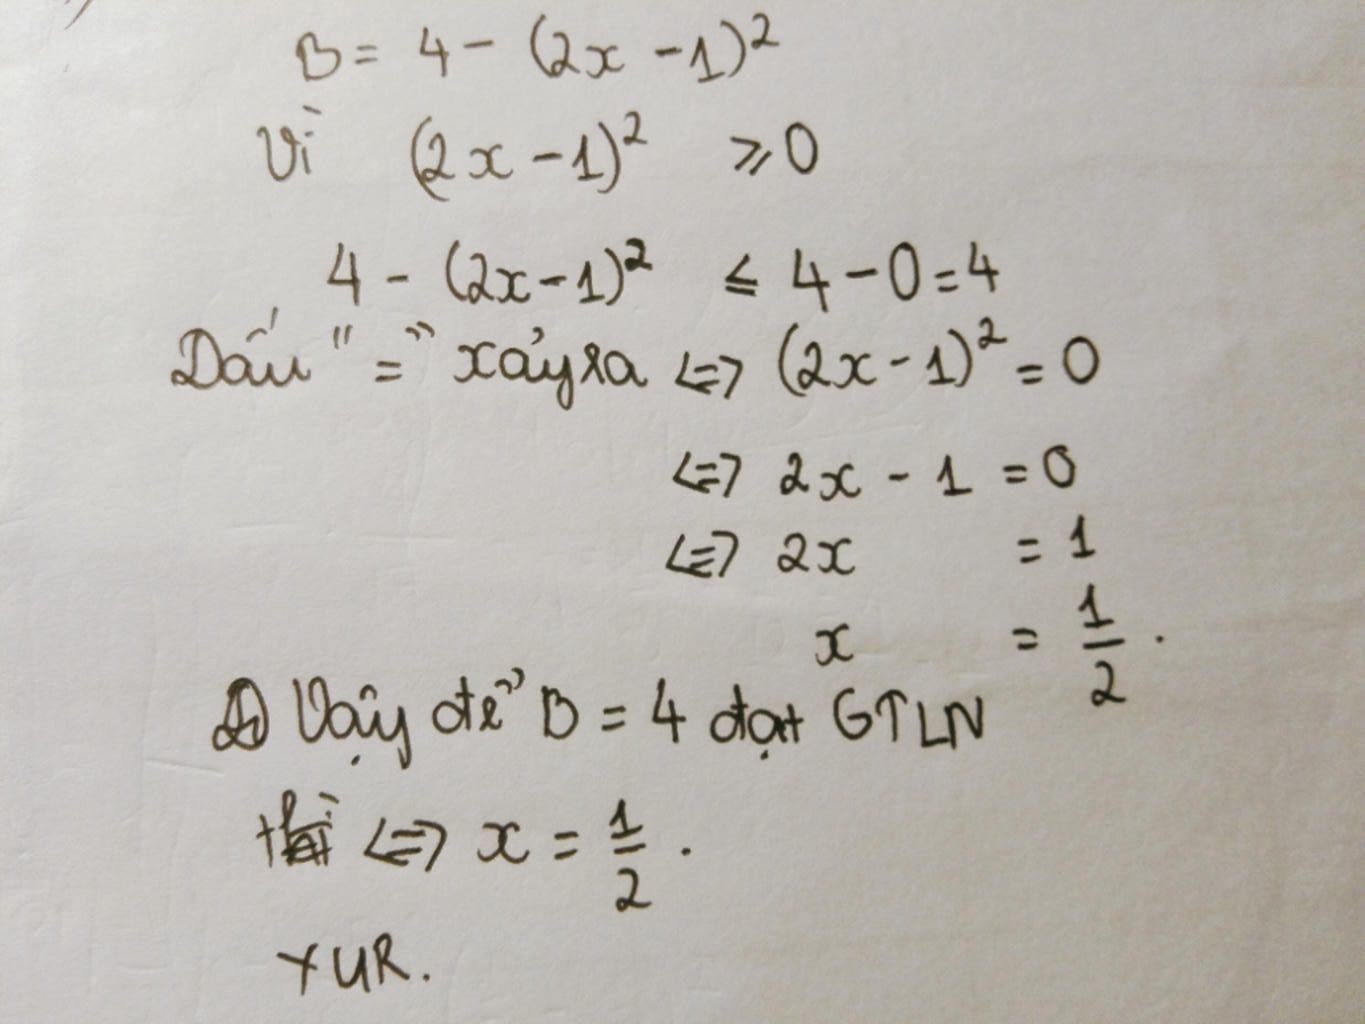 B = 4 - (2x - 1)²
Vì (2x - 1)² ⩾ 0
4 - (2x - 1)² ≤ 4 - 0 = 4
Dấu "=" xảy ra <=> (2x - 1)² = 0
<=> 2x - 1 = 0
<=> 2x = 1
x = 1/2 .
Vậy để B = 4 đạt GTLN
thì <=> x = 1/2 .
YUR.